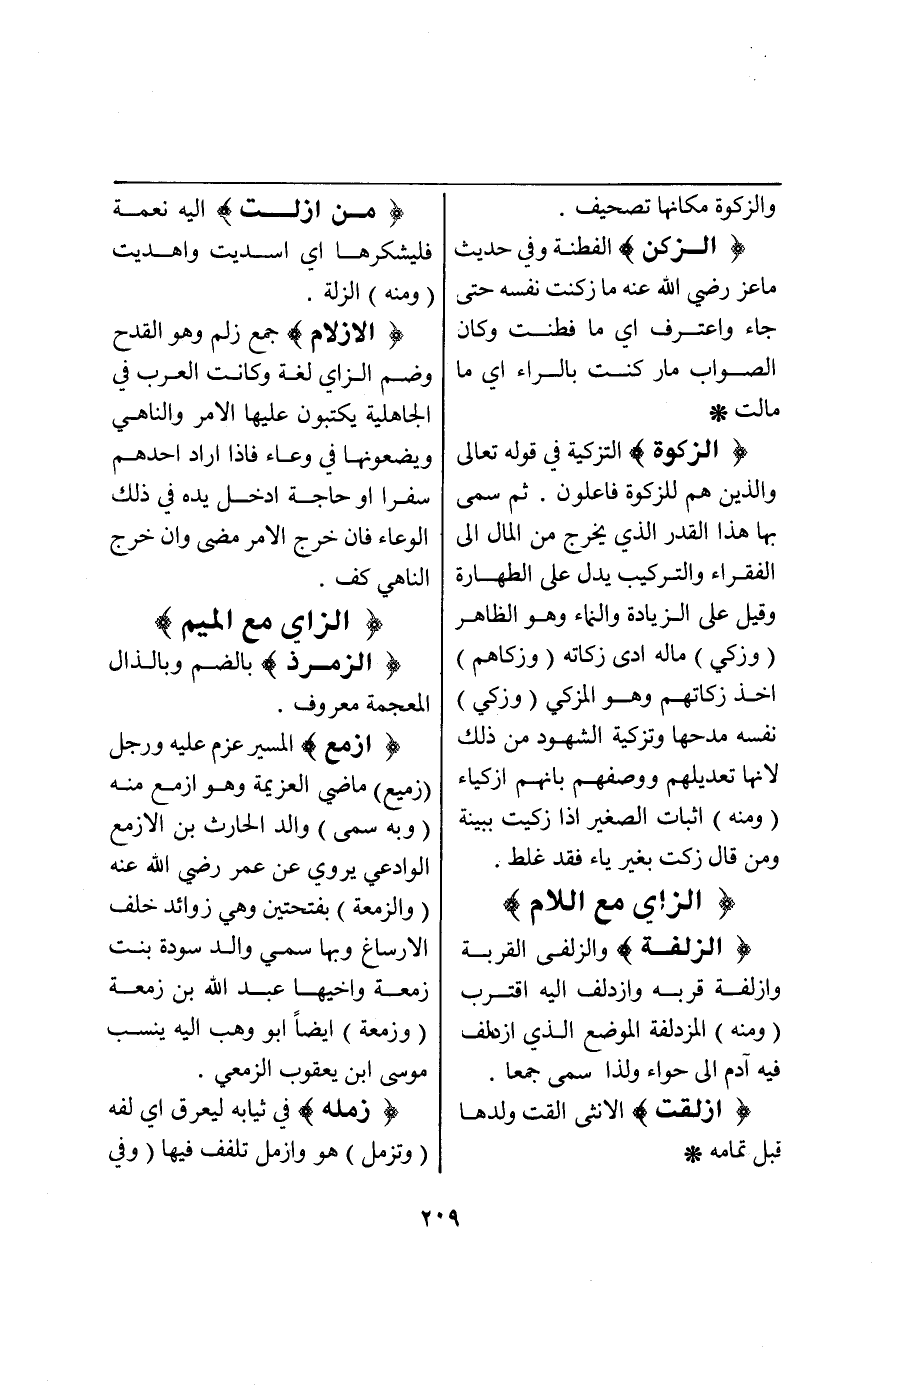 والزكوة مكانها تصحيف .
﴿ الزكن ﴾ الفطنة وفي حديث
ماعز رضي الله عنه ما زكنت نفسه حتى
جاء واعترف اي ما فطنت وكان
الصواب مار كنت بالراء اي ما
مالت *
﴿ الزكوة ﴾ التزكية في قوله تعالى
والذين هم للزكوة فاعلون . ثم سمى
بها هذا القدر الذي يخرج من المال الى
الفقراء والتركيب يدل على الطهارة
وقيل على الزيادة والنماء وهو الظاهر
( وزكي ) ماله ادى زكاته ( وزكاهم )
اخذ زكاتهم وهو المزكي ( وزكي )
نفسه مدحها وتزكية الشهود من ذلك
لانها تعديلهم ووصفهم بانهم ازكياء
( ومنه ) اثبات الصغير اذا زكيت ببينة
ومن قال زكت بغير ياء فقد غلط .
﴿ الزاي مع اللام ﴾
﴿ الزلفة ﴾ والزلفى القربة
وازلفة قربه وازدلف اليه اقترب
( ومنه ) المزدلفة الموضع الذي ازدلف
فيه آدم الى حواء ولذا سمى جمعا .
﴿ ازلقت ﴾ الانثى القت ولدها
قبل تمامه *
﴿ من ازلت ﴾ اليه نعمة
فليشكرها اي اسديت واهديت
( ومنه ) الزلة .
﴿ الازلام ﴾ جمع زلم وهو القدح
وضم الزاي لغة وكانت العرب في
الجاهلية يكتبون عليها الامر والناهي
ويضعونها في وعاء فاذا اراد احدهم
سفرا او حاجة ادخل يده في ذلك
الوعاء فان خرج الامر مضى وان خرج
الناهي كف .
﴿ الزاي مع الميم ﴾
﴿ الزمرذ ﴾ بالضم وبالذال
المعجمة معروف .
﴿ ازمع ﴾ المسير عزم عليه ورجل
(زميع) ماضي العزيمة وهو ازمع منه
( وبه سمى ) والد الحارث بن الازمع
الوادعي يروي عن عمر رضي الله عنه
( والزمعة ) بفتحتين وهي زوائد خلف
الارساغ وبها سمي والد سودة بنت
زمعة واخيها عبد الله بن زمعة
( وزمعة ) ايضاً ابو وهب اليه ينسب
موسى ابن يعقوب الزمعي .
﴿ زمله ﴾ في ثيابه ليعرق اي لفه
( وتزمل ) هو وازمل تلفف فيها ( وفي
٢٠٩